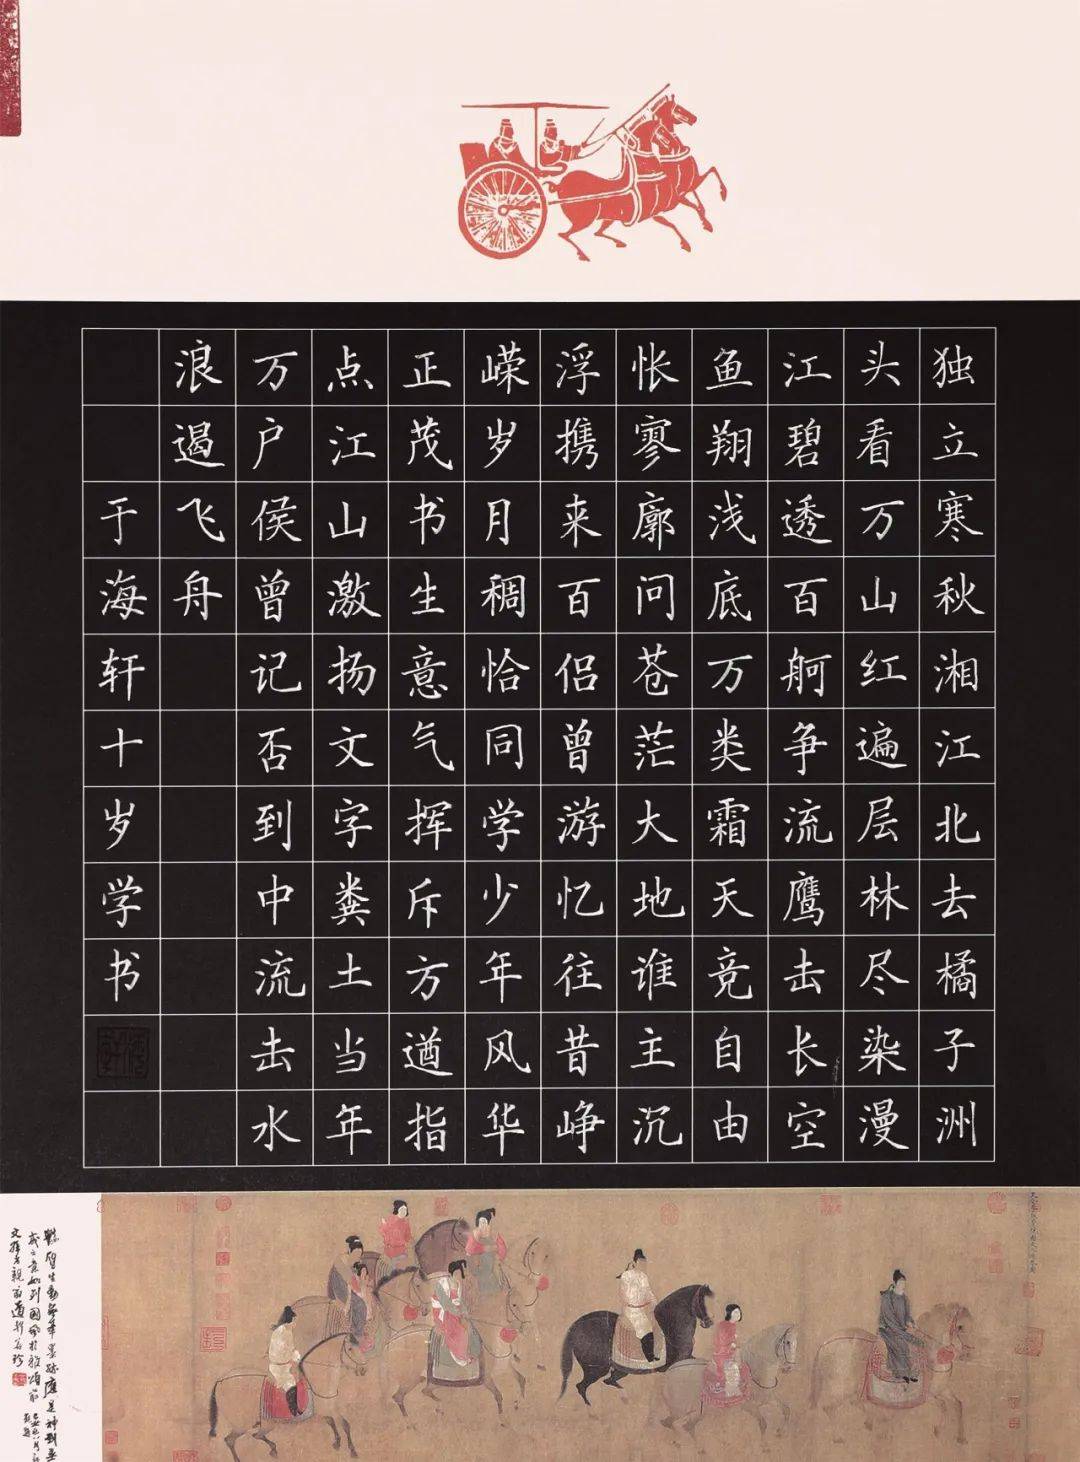 独立寒秋湘江北去橘子洲
头看万山红遍层林尽染漫
江碧透百舸争流鹰击长空
鱼翔浅底万类霜天竞自由
怅寥廓问苍茫大地谁主沉
浮携来百侣曾游忆往昔峥
嵘岁月稠恰同学少年风华
正茂书生意气挥斥方遒指
点江山激扬文字粪土当年
万户侯曾记否到中流击水
浪遏飞舟
于海轩十岁学书